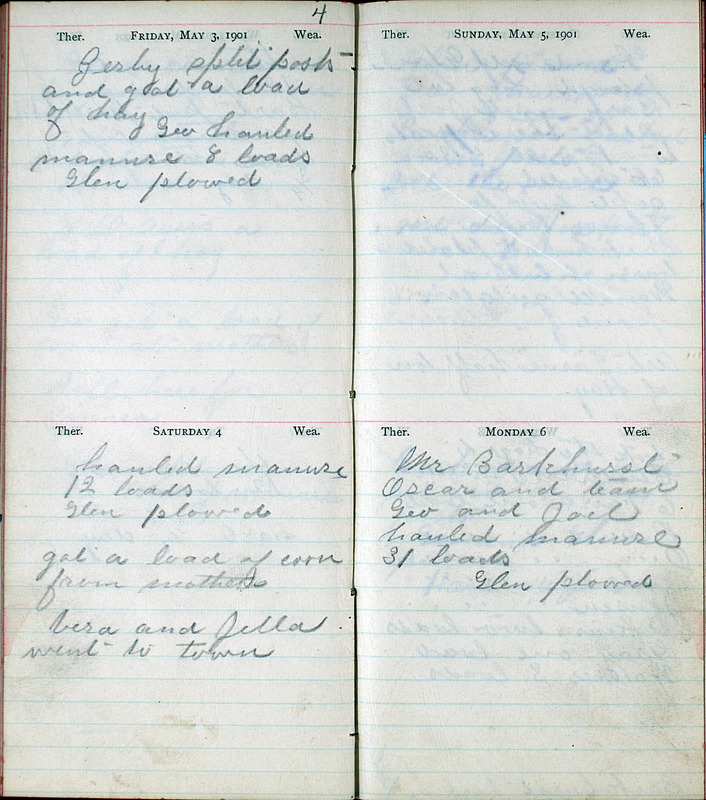 4
Ther. FRIDAY, MAY 3, 1901 Wea.
Gerby split posts
and got a load
of hay
Geo hauled
manure 8 loads
Glen plowed
Ther. SATURDAY 4 Wea.
hauled manure
12 loads
Glen plowed
got a load of corn
from mothers
Vera and Jella
went to town
Ther. SUNDAY, MAY 5, 1901 Wea.
Ther. MONDAY 6 Wea.
Mr Barkhurst
Oscar and team
Geo and Joel
hauled manure
31 loads
Glen plowed